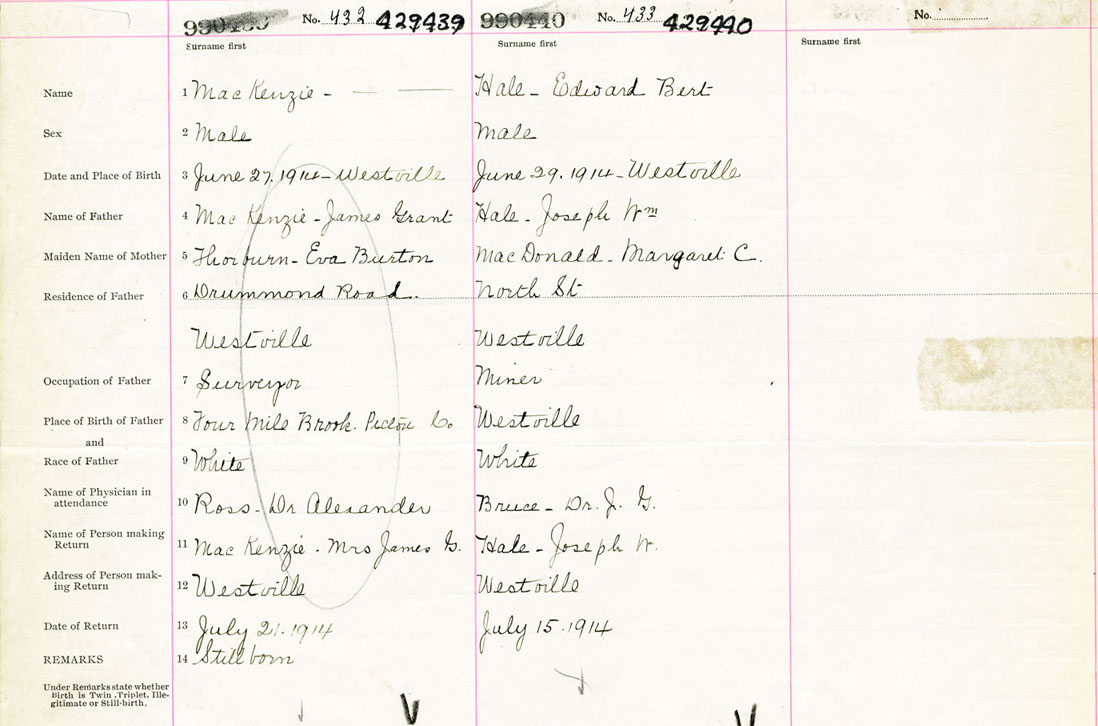 No. 432 429439 990440 No. 433 429440 No.
Surname first Surname first Surname first
Name 1 MacKenzie - — — Hale - Edward Bert
Sex 2 Male Male
Date and Place of Birth 3 June 27. 1914 - Westville June 29. 1914 - Westville
Name of Father 4 MacKenzie - James Grant Hale - Joseph Wm
Maiden Name of Mother 5 Thorburn - Eva Burton MacDonald - Margaret C.
Residence of Father 6 Drummond Road. North St
Westville Westville
Occupation of Father 7 Surveyor Miner
Place of Birth of Father 8 Four Mile Brook. Pictou Co Westville
and
Race of Father 9 White White
Name of Physician in
attendance 10 Ross - Dr Alexander Bruce - Dr. J. G.
Name of Person making
Return 11 MacKenzie - Mrs James G. Hale - Joseph W.
Address of Person mak-
ing Return 12 Westville Westville
Date of Return 13 July 21. 1914 July 15. 1914
REMARKS 14 Stillborn
Under Remarks state whether
Birth is Twin, Triplet, Ille-
gitimate or Still-birth.